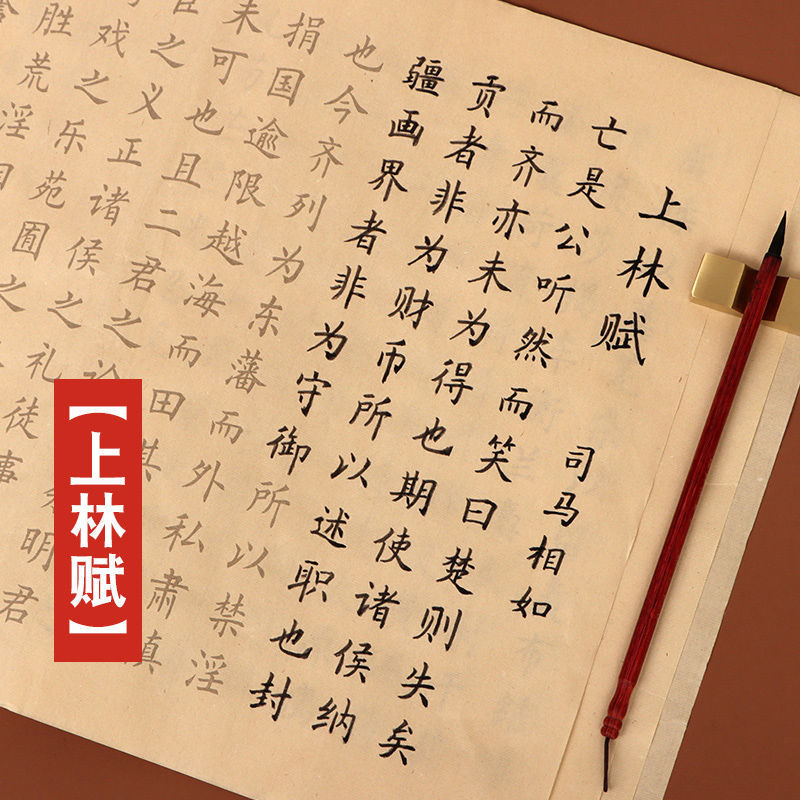 上林赋
司马相如
亡是公听然而笑曰楚则失矣
而齐亦未为得也期使诸侯纳
贡者非为财币所以述职也封
疆画界者非为守御所以禁淫
也今齐列为东藩而外私肃慎
捐国逾限越海而田其
未可也且二君之论明君
臣之义正诸侯之礼徒事
戏之乐苑囿之
胜荒淫
【上林赋】